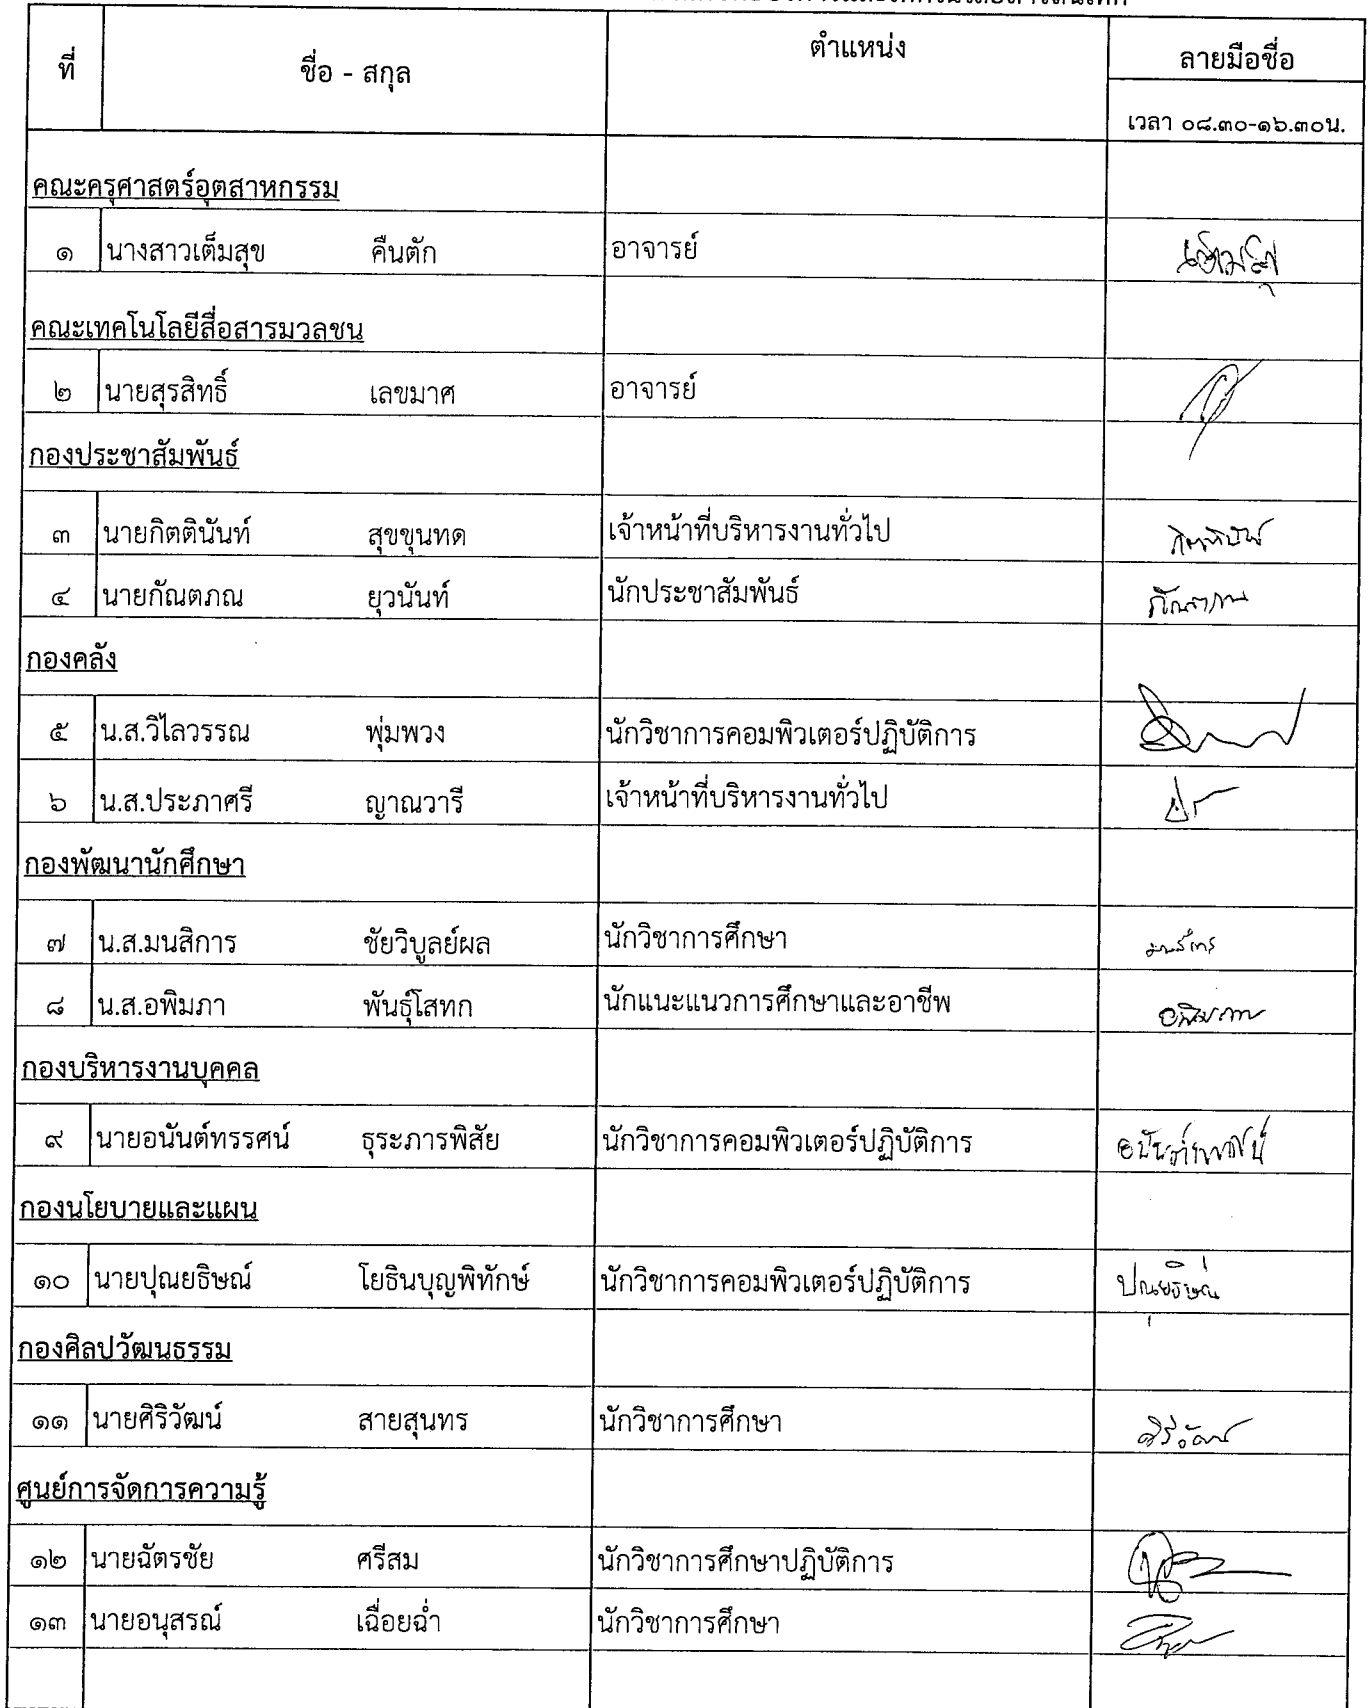 ที่ ชื่อ - สกุล ตำแหน่ง ลายมือชื่อ
เวลา ๐๘.๓๐-๑๖.๓๐น.
คณะครุศาสตร์อุตสาหกรรม
๑ นางสาวเต็มสุข คืนตัก อาจารย์ เต็มสุข
คณะเทคโนโลยีสื่อสารมวลชน
๒ นายสุรสิทธิ์ เลขมาศ อาจารย์
กองประชาสัมพันธ์
๓ นายกิตตินันท์ สุขขุนทด เจ้าหน้าที่บริหารงานทั่วไป
๔ นายกัณตภณ ยุวนันท์ นักประชาสัมพันธ์ กัณตภณ
กองคลัง
๕ น.ส.วิไลวรรณ พุ่มพวง นักวิชาการคอมพิวเตอร์ปฏิบัติการ
๖ น.ส.ประภาศรี ญาณวารี เจ้าหน้าที่บริหารงานทั่วไป
กองพัฒนานักศึกษา
๗ น.ส.มนสิการ ชัยวิบูลย์ผล นักวิชาการศึกษา มนสิการ
๘ น.ส.อพิมภา พันธุ์โสทก นักแนะแนวการศึกษาและอาชีพ อพิมภา
กองบริหารงานบุคคล
๙ นายอนันต์ทรรศน์ ธุระภารพิสัย นักวิชาการคอมพิวเตอร์ปฏิบัติการ อนันต์ทรรศน์
กองนโยบายและแผน
๑๐ นายปุณยธิษณ์ โยธินบุญพิทักษ์ นักวิชาการคอมพิวเตอร์ปฏิบัติการ ปุณยธิษณ์
กองศิลปวัฒนธรรม
๑๑ นายศิริวัฒน์ สายสุนทร นักวิชาการศึกษา ศิริวัฒน์
ศูนย์การจัดการความรู้
๑๒ นายฉัตรชัย ศรีสม นักวิชาการศึกษาปฏิบัติการ
๑๓ นายอนุสรณ์ เฉื่อยฉ่ำ นักวิชาการศึกษา